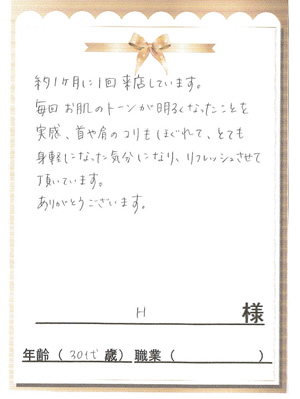 約1ヶ月に1回来店しています。
毎回お肌のトーンが明るくなったことを
実感、首や肩のコリもほぐれて、とても
身軽になった気分になり、リフレッシュさせて
頂いています。
ありがとうございます。
H 様
年齢（30代 歳）職業（　　　　　）